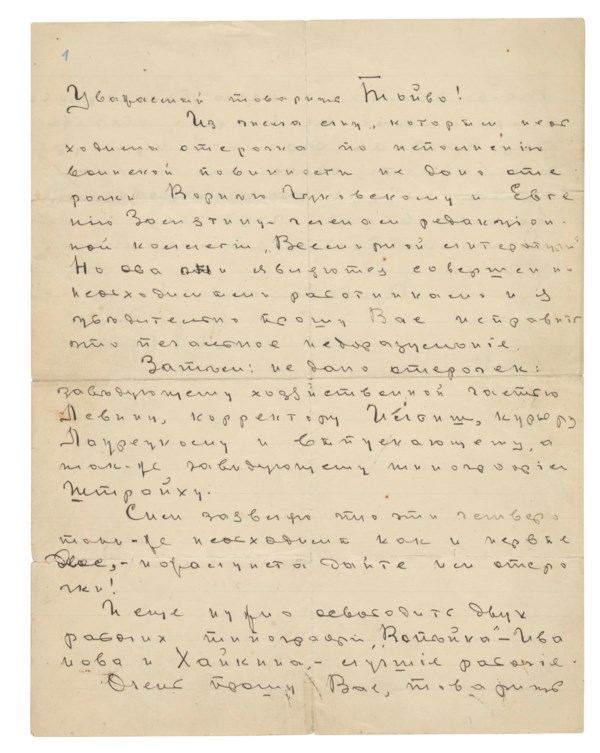 1
Уважаемый товарищ Тойво!
Из числа лиц, которым необ
ходима отсрочка по исполнению
воинской повинности не дано отс
рочки Корнею Чуковскому и Евге
нию Замятину - членам редакціон-
ной коллегіи „Всемирной литературы“
Но оба они являются совершенно
необходимыми работниками и я
убедительно прошу Вас исправить
это печальное недоразумѣніе.
Затѣм: не дано отсрочек:
заведующему хозяйственной частью
Левину, корректору курьеру
Лаурецкому и выпускающему, а
так-же заведующему типографіей
Штрайху.
Сим заявляю что эти четверо
так-же необходимы как и первые
двое, - пожалуйста дайте им отсро
чки!
И еще нужно освободить двух
рабочих типографіи „Копѣйка“ - Ива
нова и Хайкина, - лучшіе рабочіе.
Очень прошу Вас, товарищ